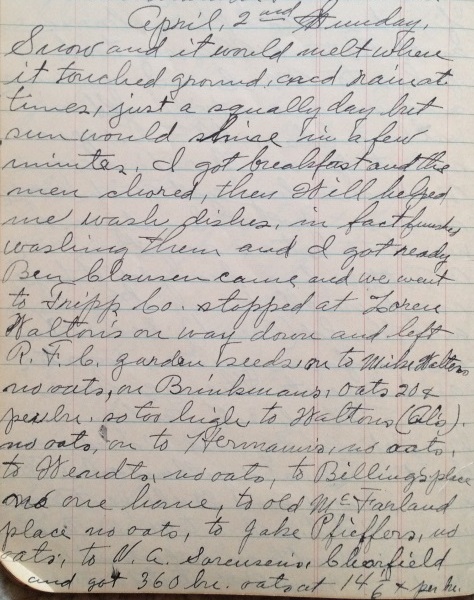 April, 2nd Sunday,
Snow and it would melt when
it touched ground, and rain at
times, just a squally day but
sun would shine in a few
minutes. I got breakfast and the
men chored, then Will helped
me wash dishes, in fact finished
washing them and I got ready
Ben Clausen came and we went
to Tripp Co. stopped at Loren
Walton's on way down and left
R. F. C. garden seeds, on to Mike Waltons
no oats, on Brinkmans, oats 20¢
per bu. so too high to Waltons (Als).
no oats, on to Hermans, no oats,
to Wendts, no oats, to Billings place
no one home, to old McFarland
place no oats, to Jake Pfieffers, no
oats, to N. A. Sorensens, Clearfield
and got 360 bu. oats at 14 ¢ per bu.